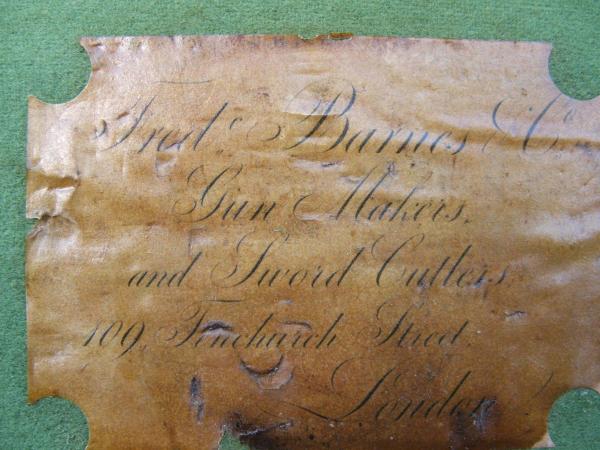 Fredc. Barnes & Co.
Gun Makers,
and Sword Cutlers,
109, Fenchurch Street
London